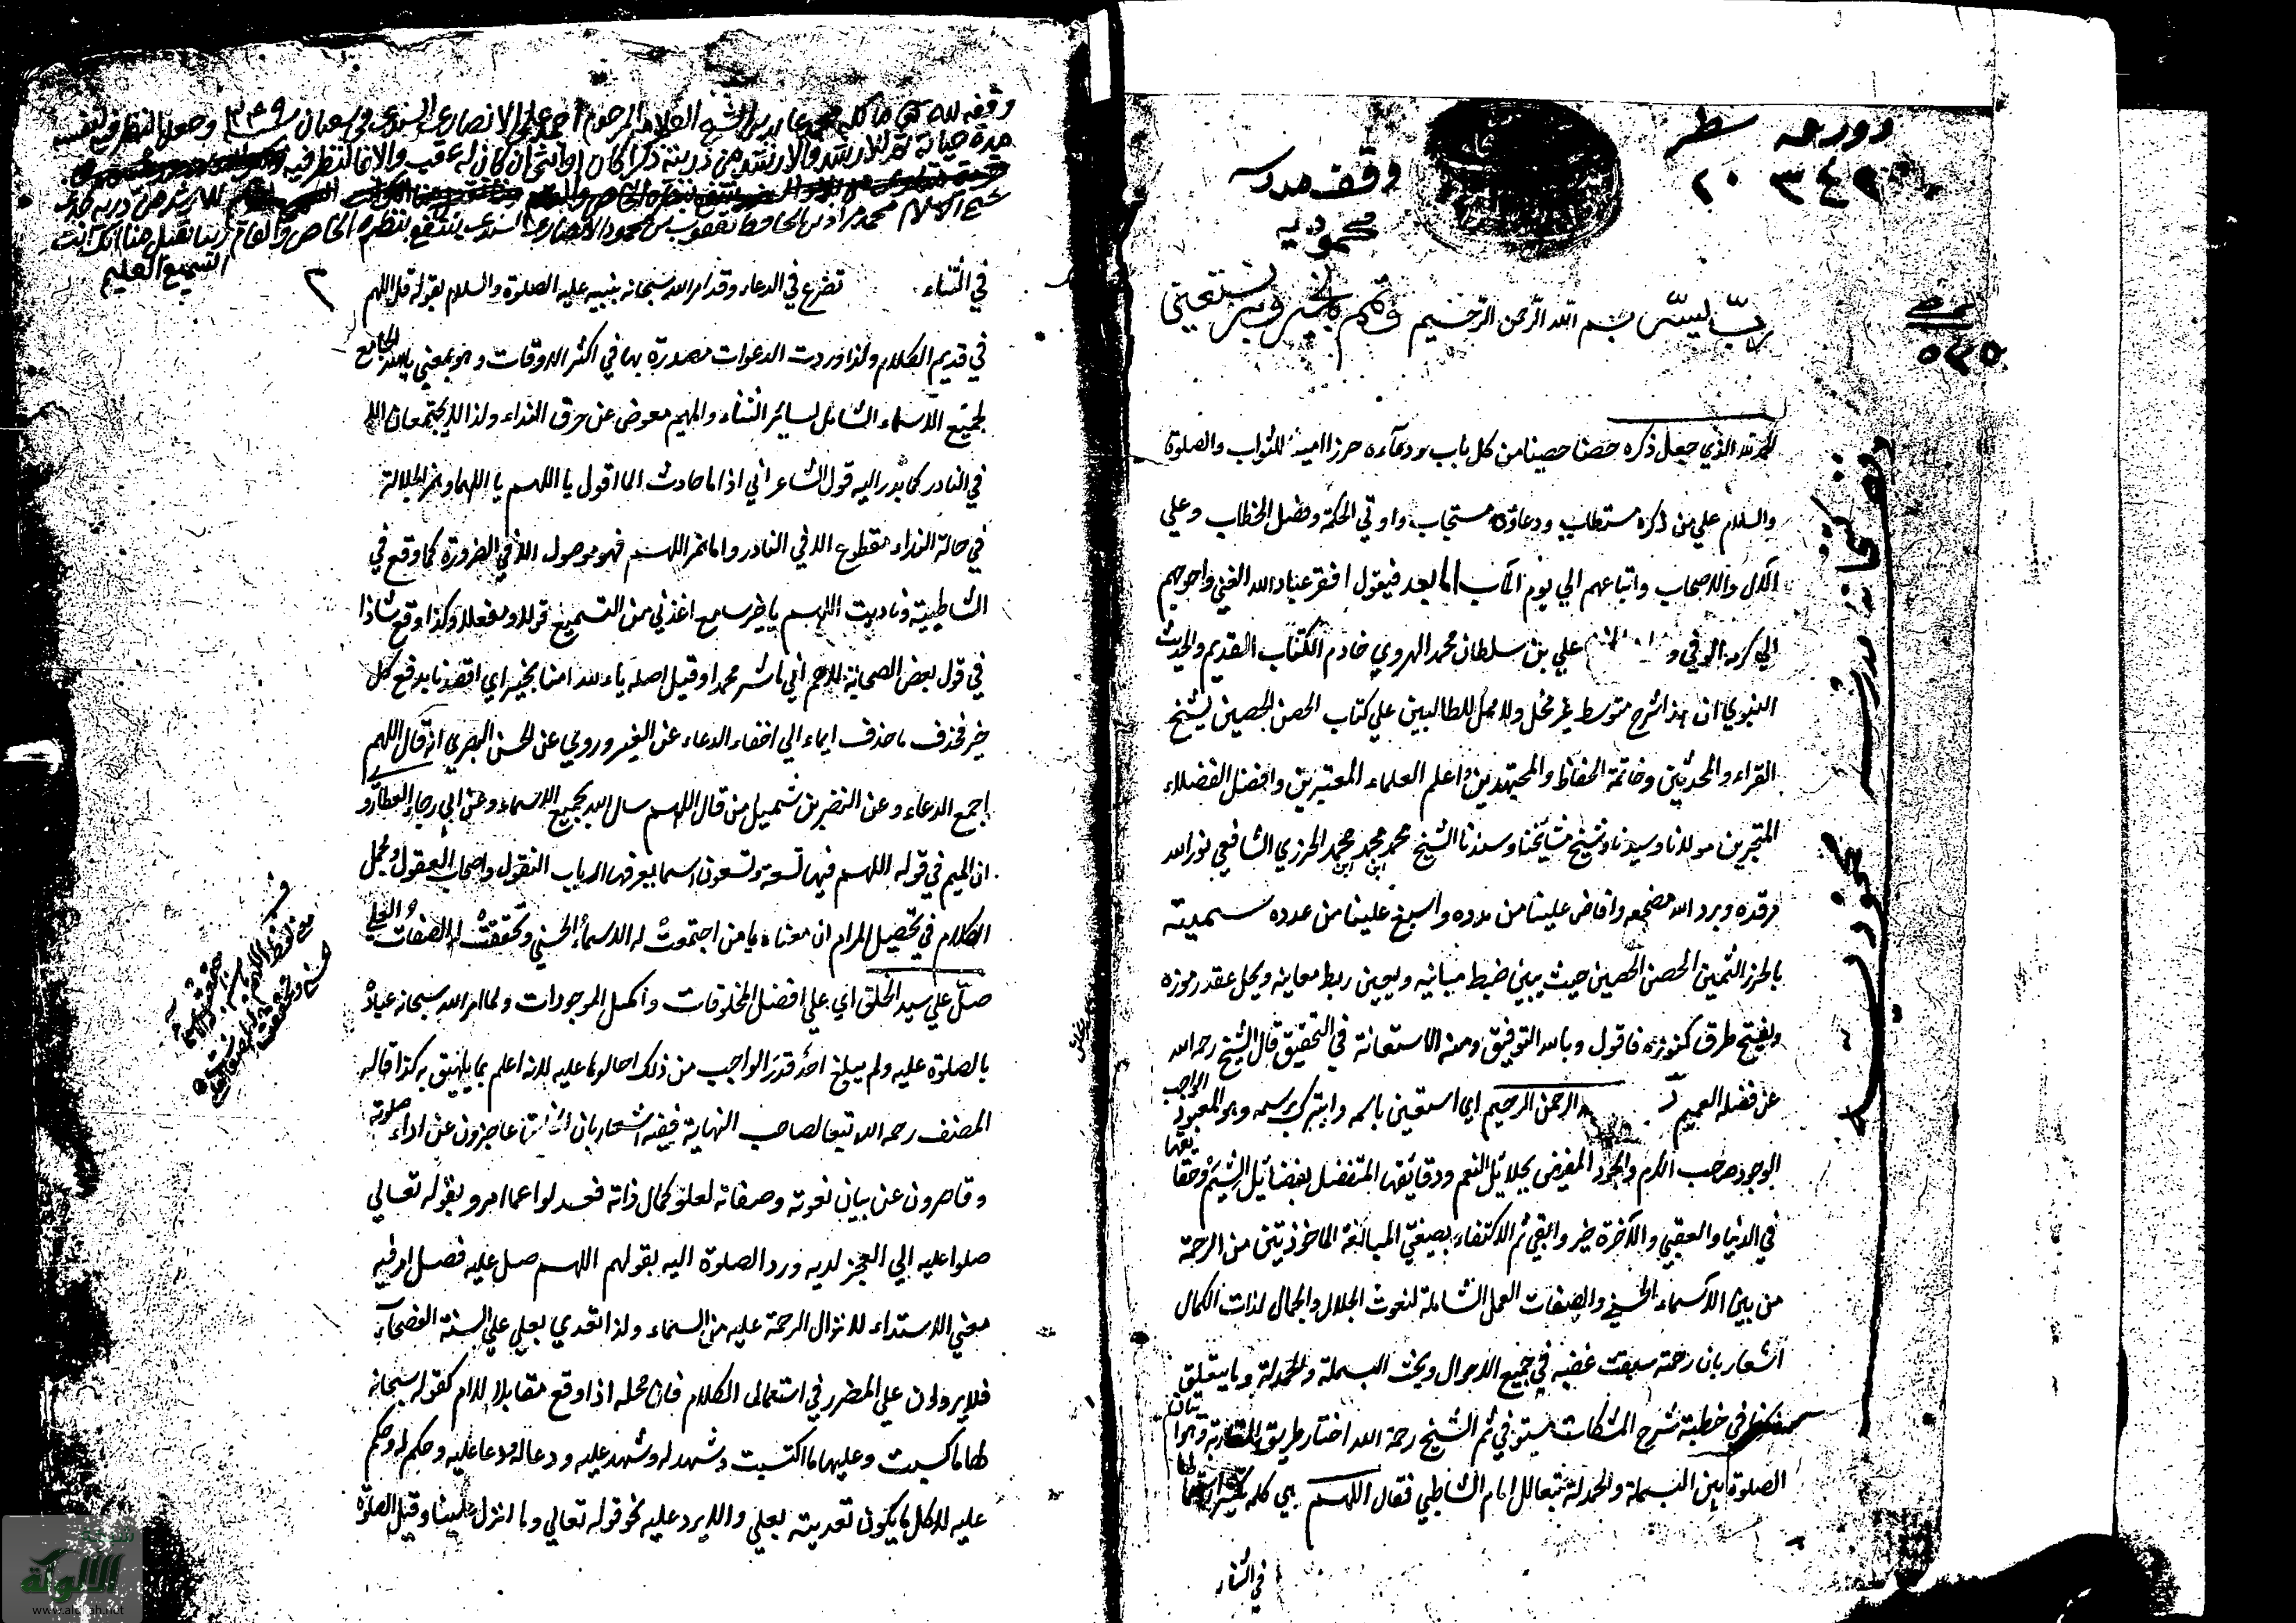 دورحہ سطر
٣٤٢ ٢٠
وقف مدرسه
محموديه
رب يسر بسم الله الرحمن الرحيم وتمم بالخير وبك نستعين
نمرة
٥٢٥
وقف كتبخانه مدرسه محموديه
الحمد لله الذي جعل ذكره حصنا حصينا من كل باب ودعاءه حرزا امينا للثواب والصلوة
والسلام علي من ذكره مستطاب ودعاؤه مستجاب واوتي الحكمة وفصل الخطاب وعلي
الآل والاصحاب واتباعهم الي يوم المآب اما بعد فيقول افقر عباد الله الغني واحوجهم
الي كرمه الوفي علي بن سلطان محمد الهروي خادم الكتاب القديم والحديث
النبوي ان هذا شرح متوسط غير مخل ولا ممل للطالبين علي كتاب الحصن الحصين لشيخ
القراء والمحدثين وخاتمة الحفاظ والمجتهدين واعلم العلماء المعتبرين وافضل الفضلاء
المتبحرين مولانا وسيدنا وشيخ مشايخنا وسندنا الشيخ محمد بن محمد بن محمد الجزري الشافعي نور الله
مرقده وبرد الله مضجعه وافاض علينا من مدده واسبغ علينا من عدده سميته
بالحرز الثمين الحصن الحصين حيث يبين ضبط مبانيه ويعين ربط معانيه ويحل عقد رموزه
ويفتح طرق كنوزه فاقول وبالله التوفيق ومنه الاستعانة في التحقيق قال الشيخ رحمه الله
عن فضله العميم الرحمن الرحيم اي استعين باسمه واتبرك برسمه وهو المعبود الواجب
الوجود صاحب الكرم والجود المفيض بجلائل النعم ودقايقها المتفضل بفضائل الشيم وحقايقها
في الدنيا والعقبي والآخرة خير وابقي ثم الاكتفاء بصيغتي المبالغة الماخوذتين من الرحمة
من بين الاسماء الحسني والصفات العلي الشاملة لنعوت الجلال والجمال لذات الكمال
اشعار بان رحمته سبقت غضبه في جميع الاحوال وبحث البسملة والحمدلة وما يتعلق
في خطبة شرح المشكات مستوفي ثم الشيخ رحمه الله اختار طريق المقاربة
الصلوة بين البسملة والحمدلة تبعا للامام الشاطبي فقال اللهم هي كلمة كثير استعمالها
في الثناء
وقفه لله تعالى مالكه محمد عابد بن الشيخ العلامة المرحوم احمد علي الانصاري السندي في شعبان سنة ١٢٤٩ وجعل النظر فيه لنفسه
مدة حياته ثم للارشد والارشد من ذريته ذكرا كان او انثى ان كان له عقب والا فالنظر فيه
للارشد من ذرية
شيخ الاسلام محمد مراد بن الحافظ يعقوب بن محمود الانصاري السندي ينتفع بنظره الخاص والعام ربنا تقبل منا انك انت
السميع العليم
٢
في الثناء تضرع في الدعاء وقد امر الله سبحانه بنبيه عليه الصلوة والسلام بقوله قل اللهم
في قديم الكلام ولذا وردت الدعوات مصدرة بها في اكثر الاوقات وهو بمعني يا الله الجامع
لجميع الاسماء الشامل لسائر الثناء والميم معوض عن حرف النداء ولذا لا يجتمعان الا
في النادر كما بدر اليه قول الشاعر اني اذا ما حادث الما اقول يا اللهم يا اللهما وهمز الجلالة
في حالة النداء مقطوع الا في النادر واما همز اللهم فهو موصول الا في الضرورة كما وقع في
الشاطبية وناديت اللهم يا خير سامع اعذني من التسميع قولا ومفعلا وكذا وقع شاذا
في قول بعض الصحابة لاهم اني ناشد محمدا وقيل اصله يا الله امنا بخير اي اقصدنا بدفع كل
خير فحذف ما حذف ايماء الي اخفاء الدعاء عن الغير وروي عن الحسن البصري انه قال اللهم
اجمع الدعاء وعن النضر بن شميل من قال اللهم سال الله بجميع الاسماء وعن ابي رجاء العطاردي
ان الميم في قوله اللهم فيها تسعة وتسعون اسما يعرفها ارباب النقول واصحاب العقول ومجمل
الكلام في تحصيل المرام ان معناه يا من اجتمعت له الاسماء الحسني وتحققت له الصفات العلي
صل علي سيد الخلق اي علي افضل المخلوقات واكمل الموجودات ولما امر الله سبحانه عباده
بالصلوة عليه ولم يبلغ احد قدر الواجب من ذلك احالوها عليه لانه اعلم بما يليق به كذا قاله
المصنف رحمه الله تبعا لصاحب النهاية ففيه اشعار بان عاجزون عن اداء صلوته
وقاصرون عن بيان نعوته وصفاته لعلو كمال ذاته فعدلوا عما امروا بقوله تعالي
صلوا عليه الي العجز لديه ورد الصلوة اليه بقولهم اللهم صل عليه فصل امر فيه
معني الاستدعاء لانزال الرحمة عليه من السماء ولذا تعدي بعلي علي السنة الفصحاء
فلا يرد ان علي للضرر في استعمال الكلام فان محله اذا وقع مقابلا للام كقوله سبحانه
لها ما كسبت وعليها ما اكتسبت وشهد له وشهد عليه ودعا له ودعا عليه وحكم له وحكم
عليه لا كل ما يكون تعديته بعلي والا يرد عليه نحو قوله تعالي وما انزل علينا وقيل الصلوة
شبكة
الألوكة
www.alukah.net